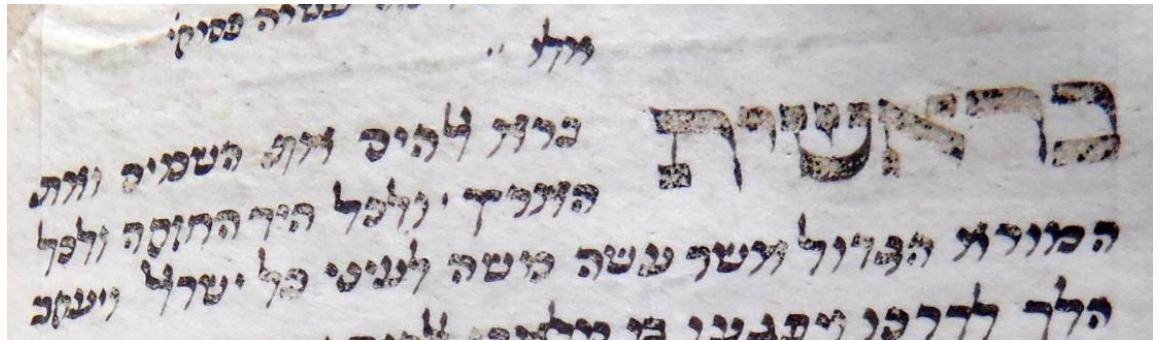 בראשית ברא ﭏהים את השמים ואת
הארץ ׳ ולכל היד החזקה ולכל
המורא הגדול אשר עשה משה לעיני כל ישרﭏ ויעקב
הלך לדרכו ויפגעו בו מלאכי ﭏהים